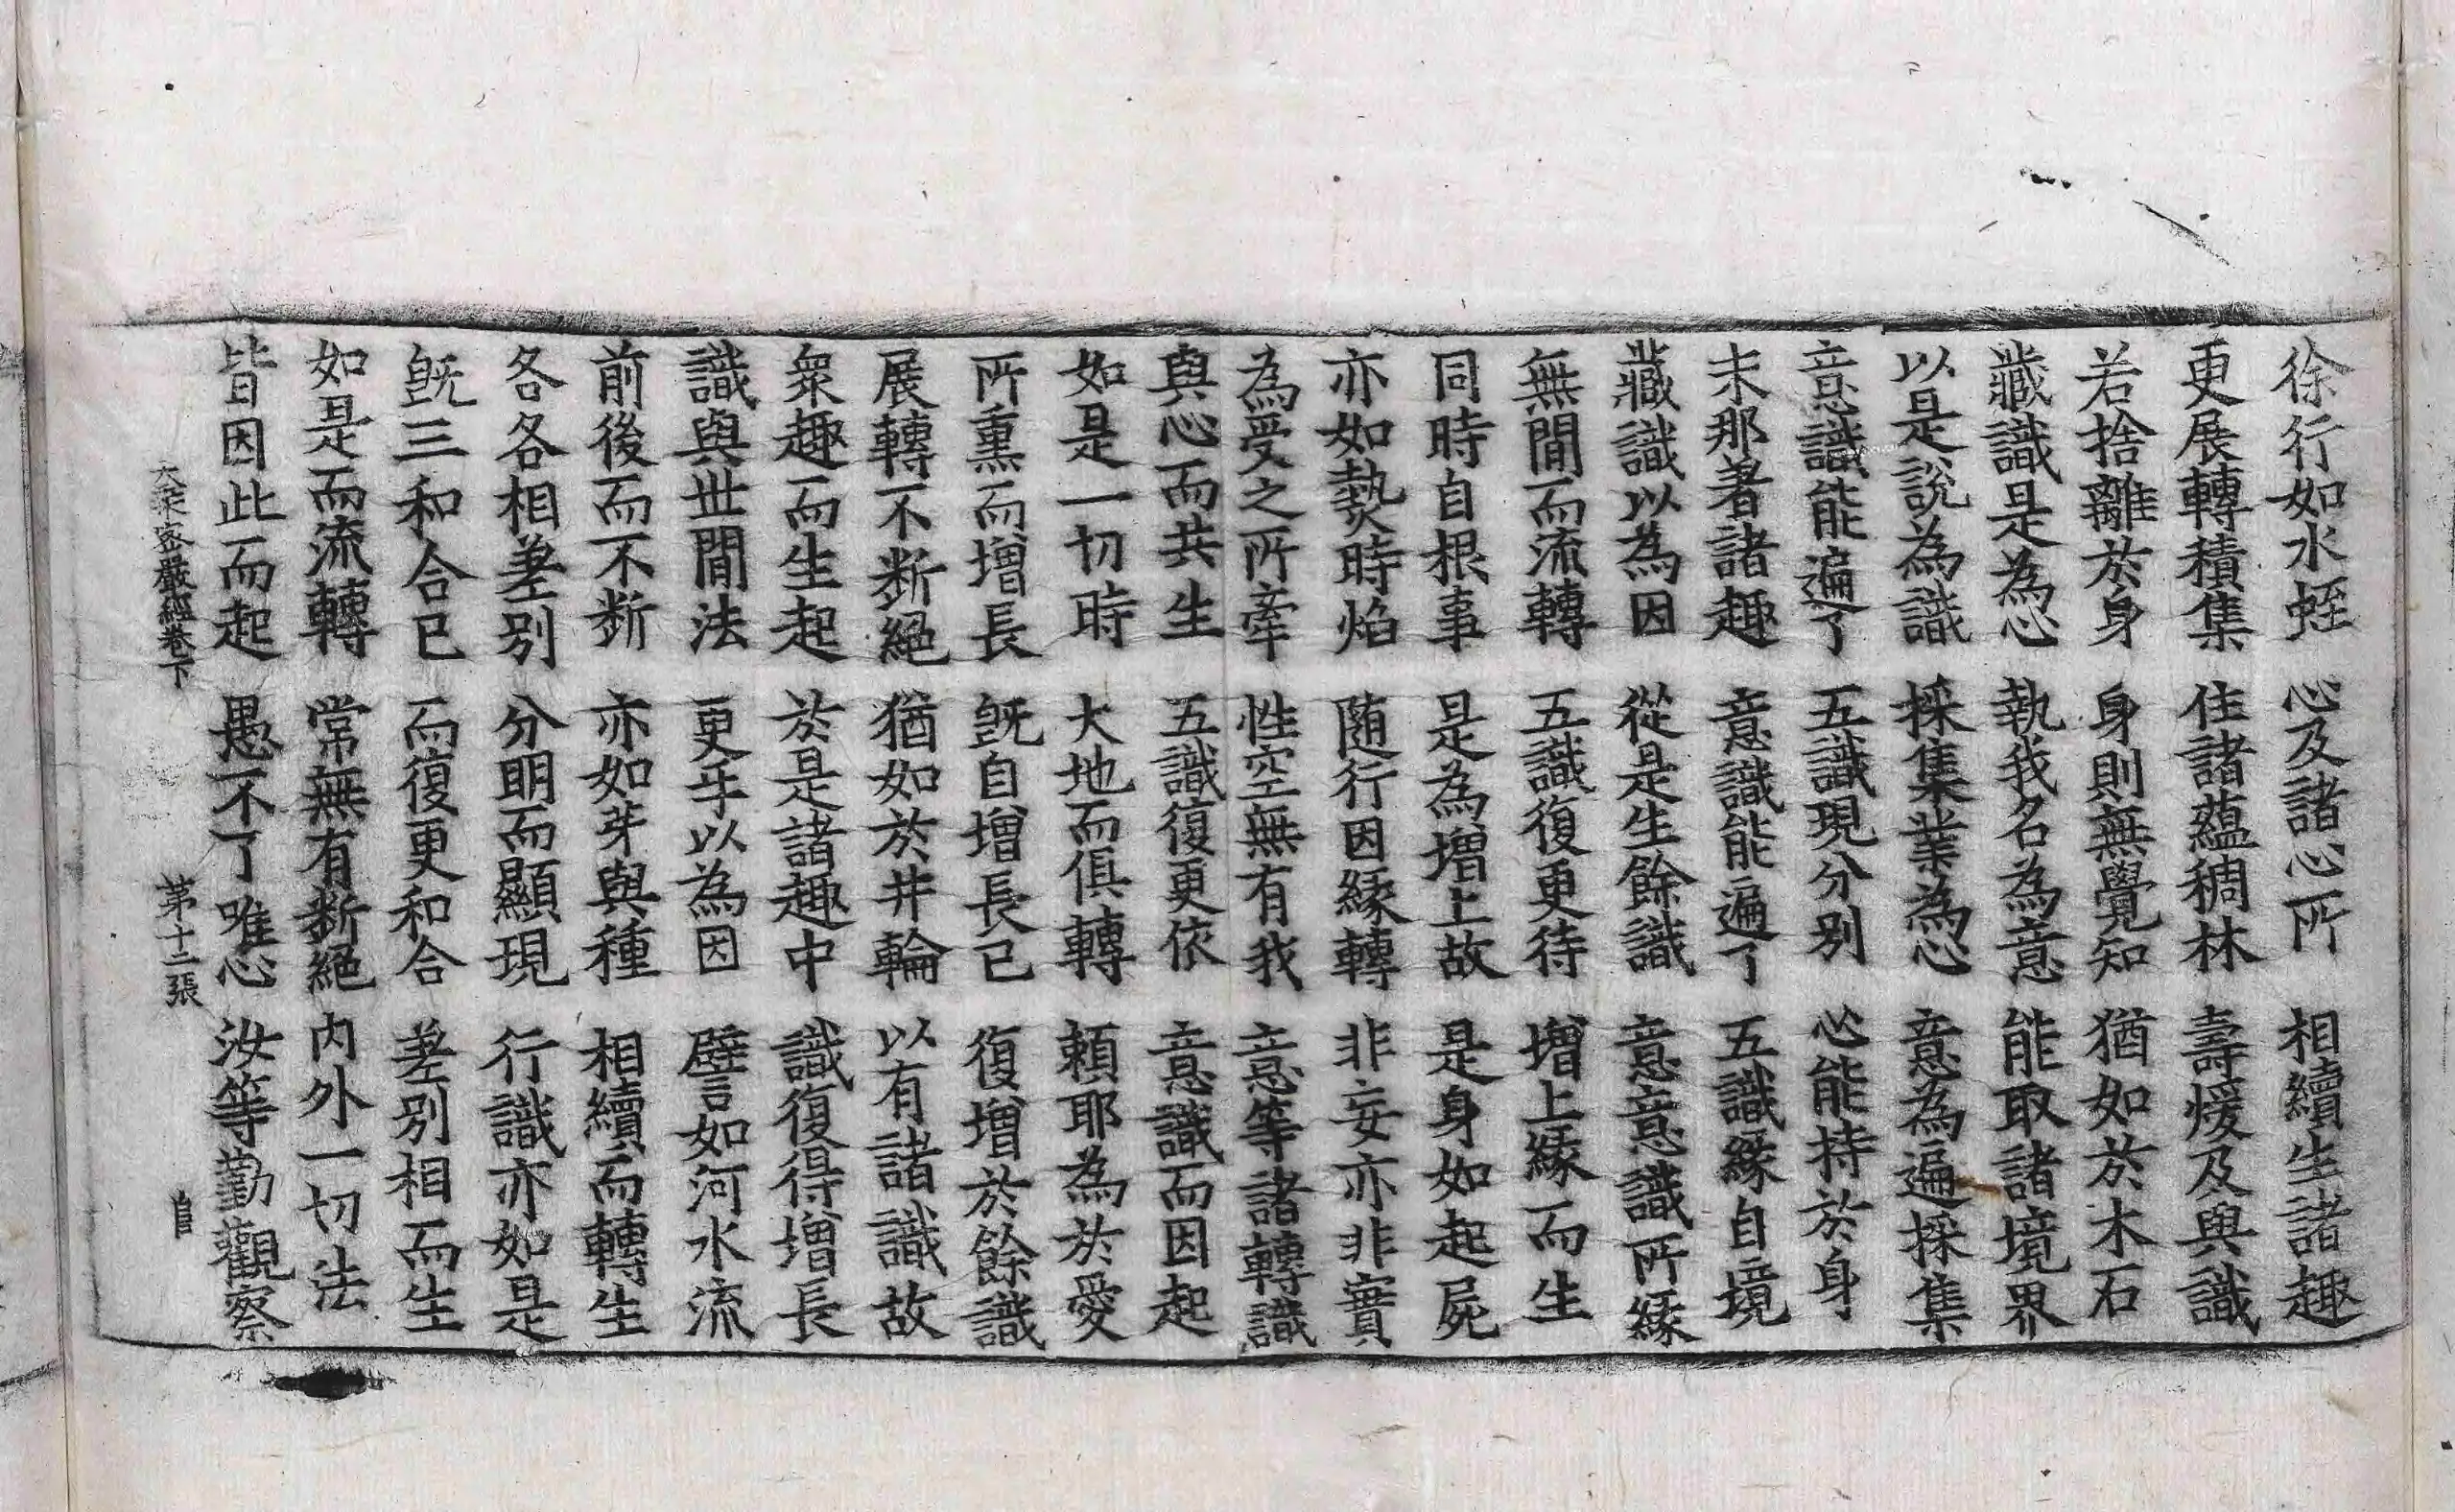 徐行如水蛭　心及諸心所　相續生諸趣
更展轉積集　住諸蘊稠林　壽煖及與識
若捨離於身　身則無覺知　猶如於木石
藏識是為心　執我名為意　能取諸境界
以是說為識　採集業為心　意為遍採集
意識能遍了　五識現分別　心能持於身
末那著諸趣　意識能遍了　五識緣自境
藏識以為因　從是生餘識　意意識所緣
無間而流轉　五識復更待　增上緣而生
同時自根事　是為增上故　是身如起屍
亦如熱時焰　随行因緣轉　非妄亦非實
為受之所牽　性空無有我　意等諸轉識
與心而共生　五識復更依　意識而因起
如是一切時　大地而俱轉　頼耶為於愛
所熏而增長　旣自增長已　復增於餘識
展轉不斷絕　猶如於井輪　以有諸識故
衆趣而生起　於是諸趣中　識復得增長
識與世間法　更乎以為因　譬如河水流
前後而不斷　亦如芽與種　相續而轉生
各各相差別　分明而顯現　行識亦如是
旣三和合已　而復更和合　差別相而生
如是而流轉　常無有斷絕　内外一切法
皆因此而起　愚不了唯心　汝等勤觀察
大乘密嚴經卷下　第十二張　自